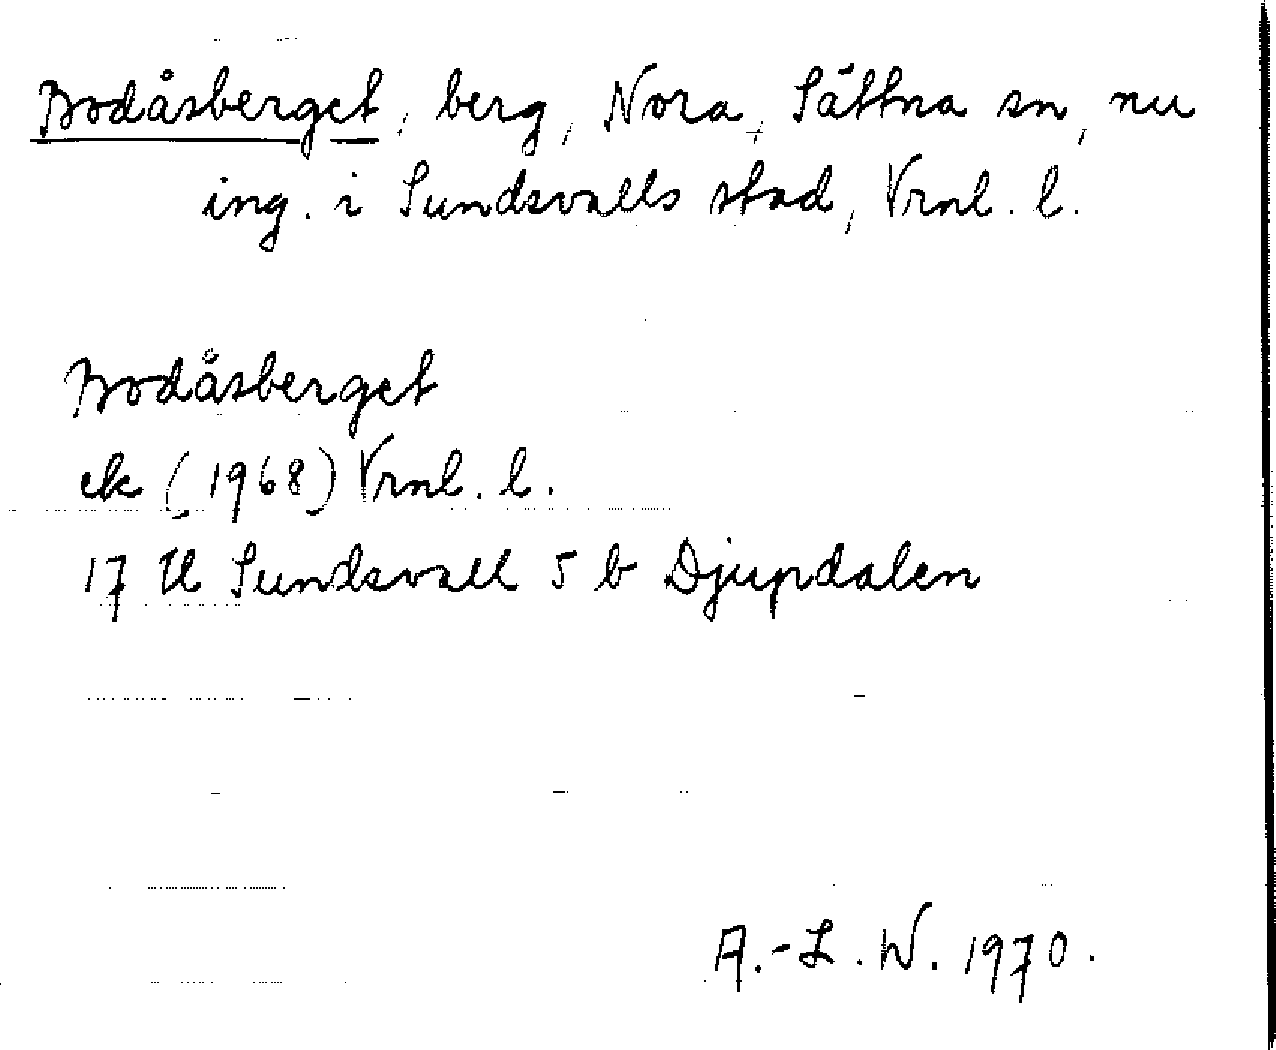 Bodåsberget, berg, Nora, Sättna sn, nu
ing. i Sundsvalls stad, Vrnl. l.
Bodåsberget
ek (1968) Vrnl. l.
17 H Sundsvall 5 b Djupdalen
A.-L. W. 1970.